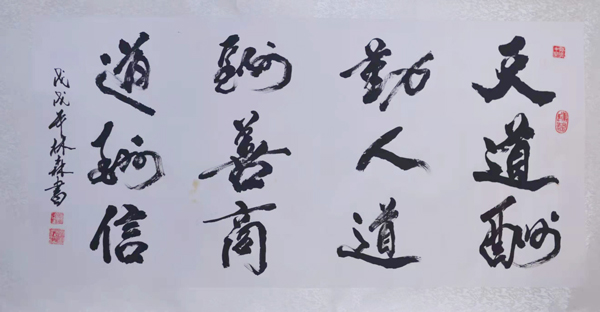 天道酬
勤人道
酬善商
道酬信
戊戌年林森書